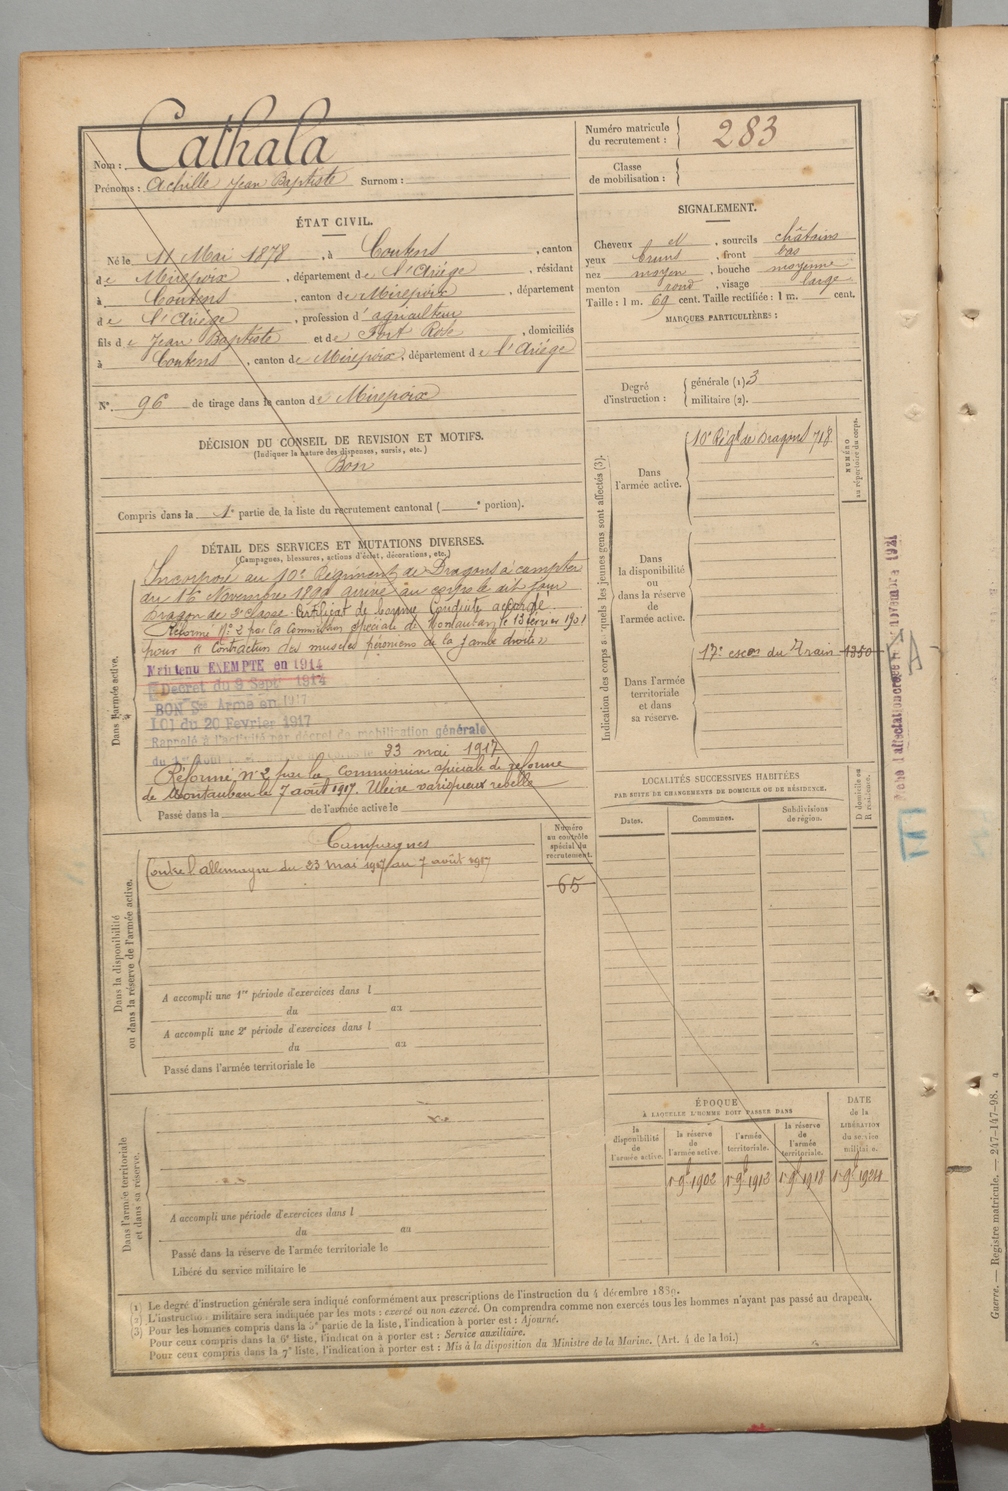 Nom : Cathala
Prénoms : Achille Jean Baptiste Surnom :
Numéro matricule du recrutement : 283
Classe de mobilisation :
ÉTAT CIVIL.
Né le 11 Mai 1878, à Coutens, canton
de Mirepoix, département de l'Ariège, résidant
à Coutens, canton de Mirepoix, département
de l'Ariège, profession d'agriculteur
fils de Jean Baptiste et de Fort Rose, domiciliés
à Coutens, canton de Mirepoix, département de l'Ariége
N° 96 de tirage dans le canton de Mirepoix
SIGNALEMENT.
Cheveux et, sourcils châtains
yeux bruns, front bas
nez moyen, bouche moyenne
menton rond, visage large
Taille : 1 m. 69 cent. Taille rectifiée : 1 m. cent.
MARQUES PARTICULIÈRES :
Degré d'instruction : générale (1) 3
militaire (2).
DÉCISION DU CONSEIL DE REVISION ET MOTIFS.
(Indiquer la nature des dispenses, sursis, etc.)
Bon
Compris dans la 1e partie de la liste du recrutement cantonal ( e portion).
DÉTAIL DES SERVICES ET MUTATIONS DIVERSES.
(Campagnes, blessures, actions d'éclat, décorations, etc.)
Dans l'armée active.
Incorporé au 10e Régiment de Dragons à compter
du 16 Novembre 1899 arrivé au corps le dit jour
Dragon de 2e classe. Certificat de bonne Conduite accordé.
Réformé N° 2 par la Commission spéciale de Montauban le 13 1901
pour "Contraction des muscles péroniers de la jambe droite"
Maintenu EXEMPTE en 1914
Décret du 9 Sept 1914
BON Sce Armé en 1917
LOI du 20 Février 1917
Rappelé à l'activité par décret de mobilisation générale
du 1er Août 23 mai 1917
Réformé n° 2 par la Commission spéciale de réforme
de Montauban le 7 août 1917. Ulcère variqueux rebelle
Passé dans la de l'armée active le
Indication des corps auxquels les jeunes gens sont affectés (3).
NUMÉRO au répertoire du corps.
Dans l'armée active. 10e Régt de Dragons 718
Dans la disponibilité ou dans la réserve de l'armée active.
Dans l'armée territoriale et dans sa réserve. 17e escon du Train 1350
1921
LOCALITÉS SUCCESSIVES HABITÉES
PAR SUITE DE CHANGEMENTS DE DOMICILE OU DE RÉSIDENCE.
Dates. Communes. Subdivisions de région. D domicile ou R résidence.
Dans la disponibilité ou dans la réserve de l'armée active.
Numéro au contrôle spécial du recrutement.
65
Campagnes
Contre l'allemagne du 23 mai 1917 au 7 août 1917
A accompli une 1re période d'exercices dans l
du au
A accompli une 2e période d'exercices dans l
du au
Passé dans l'armée territoriale le
ÉPOQUE
À LAQUELLE L'HOMME DOIT PASSER DANS
la disponibilité de l'armée active.
la réserve de l'armée active.
l'armée territoriale.
la réserve de l'armée territoriale.
DATE de la LIBÉRATION du service militaire.
1er 9bre 1902 1er 9bre 1912 1er 9bre 1918 1er 9bre 1924
Dans l'armée territoriale et dans sa réserve.
A accompli une période d'exercices dans l
du au
Passé dans la réserve de l'armée territoriale le
Libéré du service militaire le
(1) Le degré d'instruction générale sera indiqué conformément aux prescriptions de l'instruction du 4 décembre 1889.
(2) L'instruction militaire sera indiquée par les mots : exercé ou non exercé. On comprendra comme non exercés tous les hommes n'ayant pas passé au drapeau.
(3) Pour les hommes compris dans la 5e partie de la liste, l'indication à porter est : Ajourné.
Pour ceux compris dans la 6e liste, l'indication à porter est : Service auxiliaire.
Pour ceux compris dans la 7e liste, l'indication à porter est : Mis à la disposition du Ministre de la Marine. (Art. 4 de la loi.)
Guerre. — Registre matricule. — 247-147-98. a